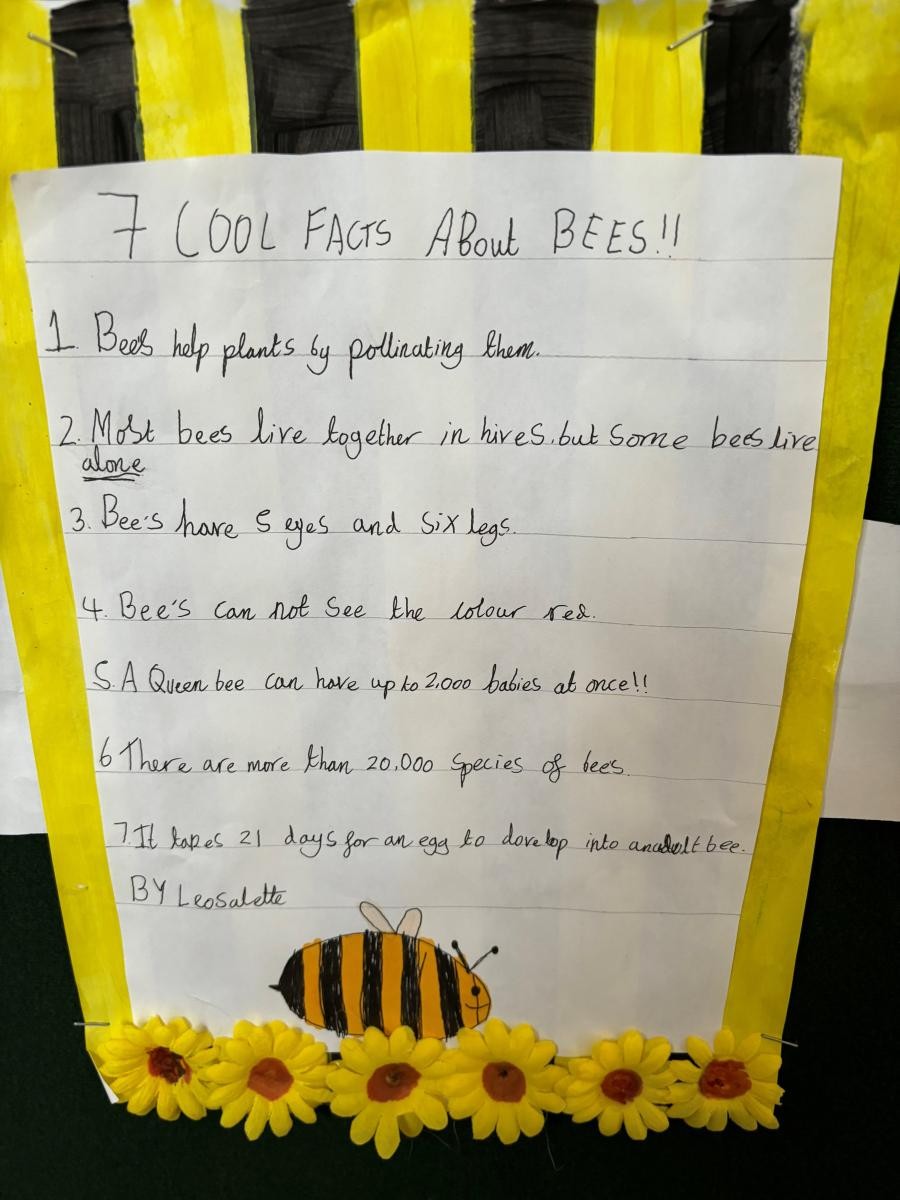 7 COOL FACTS ABout BEES!!
1. Bees help plants by pollinating them.
2. Most bees live together in hives. but Some bees live
alone
3. Bee's have 5 eyes and six legs.
4. Bee's can not See the colour red.
5. A Queen bee can have up to 2,000 babies at once!!
6 There are more than 20,000 Species of bees.
7. It takes 21 days for an egg to dovelop into an adult bee.
BY Leosalette